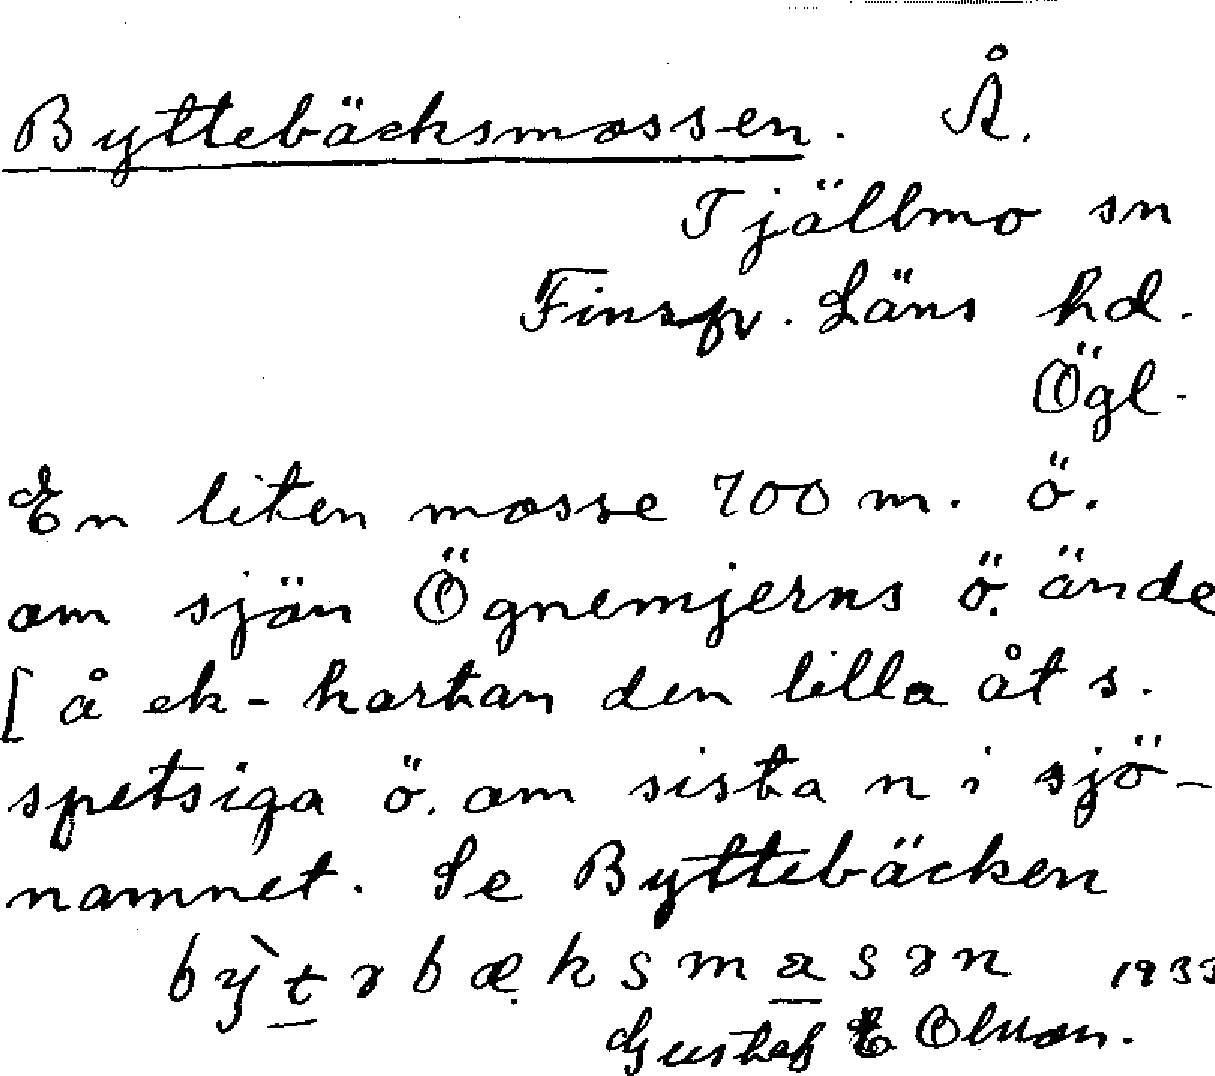 Byttebäcksmossen. Å.
Tjällmo sn
Finsp. Läns hd.
Ögl.
En liten mosse 700 m. ö.
om sjön Ögnemjerns ö. ände
[å ek-kartan den lilla åt s.
spetsiga ö. om sista n i sjö-
namnet. Se Byttebäcken
bỳtəbæksmasən 1933
Gustaf E Olsson.